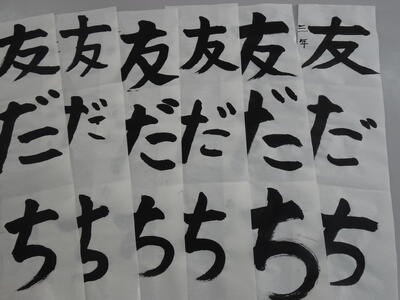 友だち
三年
友だち
友だち
友だち
友だち
友だち